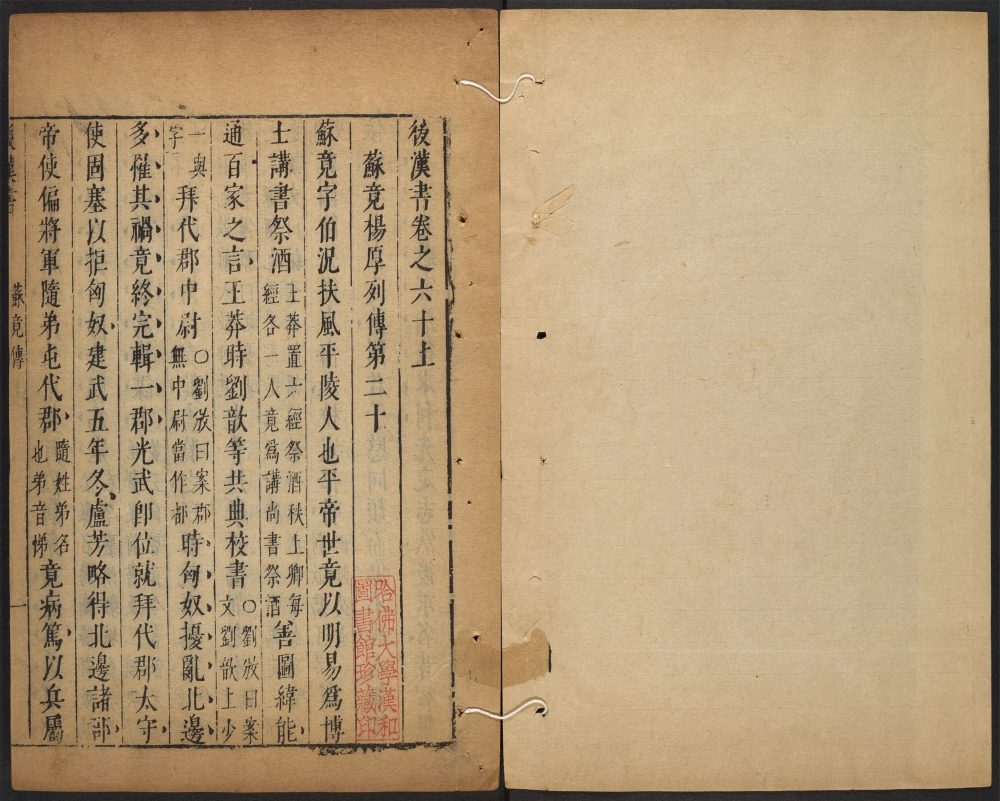 後漢書卷之六十上
蘇竟楊厚列傳第二十
蘇竟字伯況扶風平陵人也平帝世竟以明易爲博
士講書祭酒王莽置六經祭酒秩上卿每經各一人竟爲講尚書祭酒善圖緯能
通百家之言王莽時劉歆等共典校書○劉攽曰案文劉歆上少
一與字拜代郡中尉○劉攽曰案郡無中尉當作都時匈奴擾亂北邊
多罹其禍竟終完輯一郡光武卽位就拜代郡太守
使固塞以拒匈奴建武五年冬盧芳略得北邊諸郡
帝使偏將軍隨弟屯代郡隨姓弟名也弟音悌竟病篤以兵屬
蘇竟傳
一
哈佛大學漢和
圖書館珍藏印